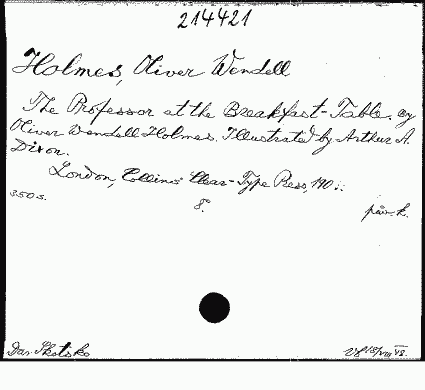 214421
Holmes, Oliver Wendell
The Professor at the Breakfast-Table. By
Oliver Wendell Holmes. Illustrated by Arthur A.
Dixon.
London, Collins' Clear-Type Press, 190
350 s. 8°.
Dar. Skotsko